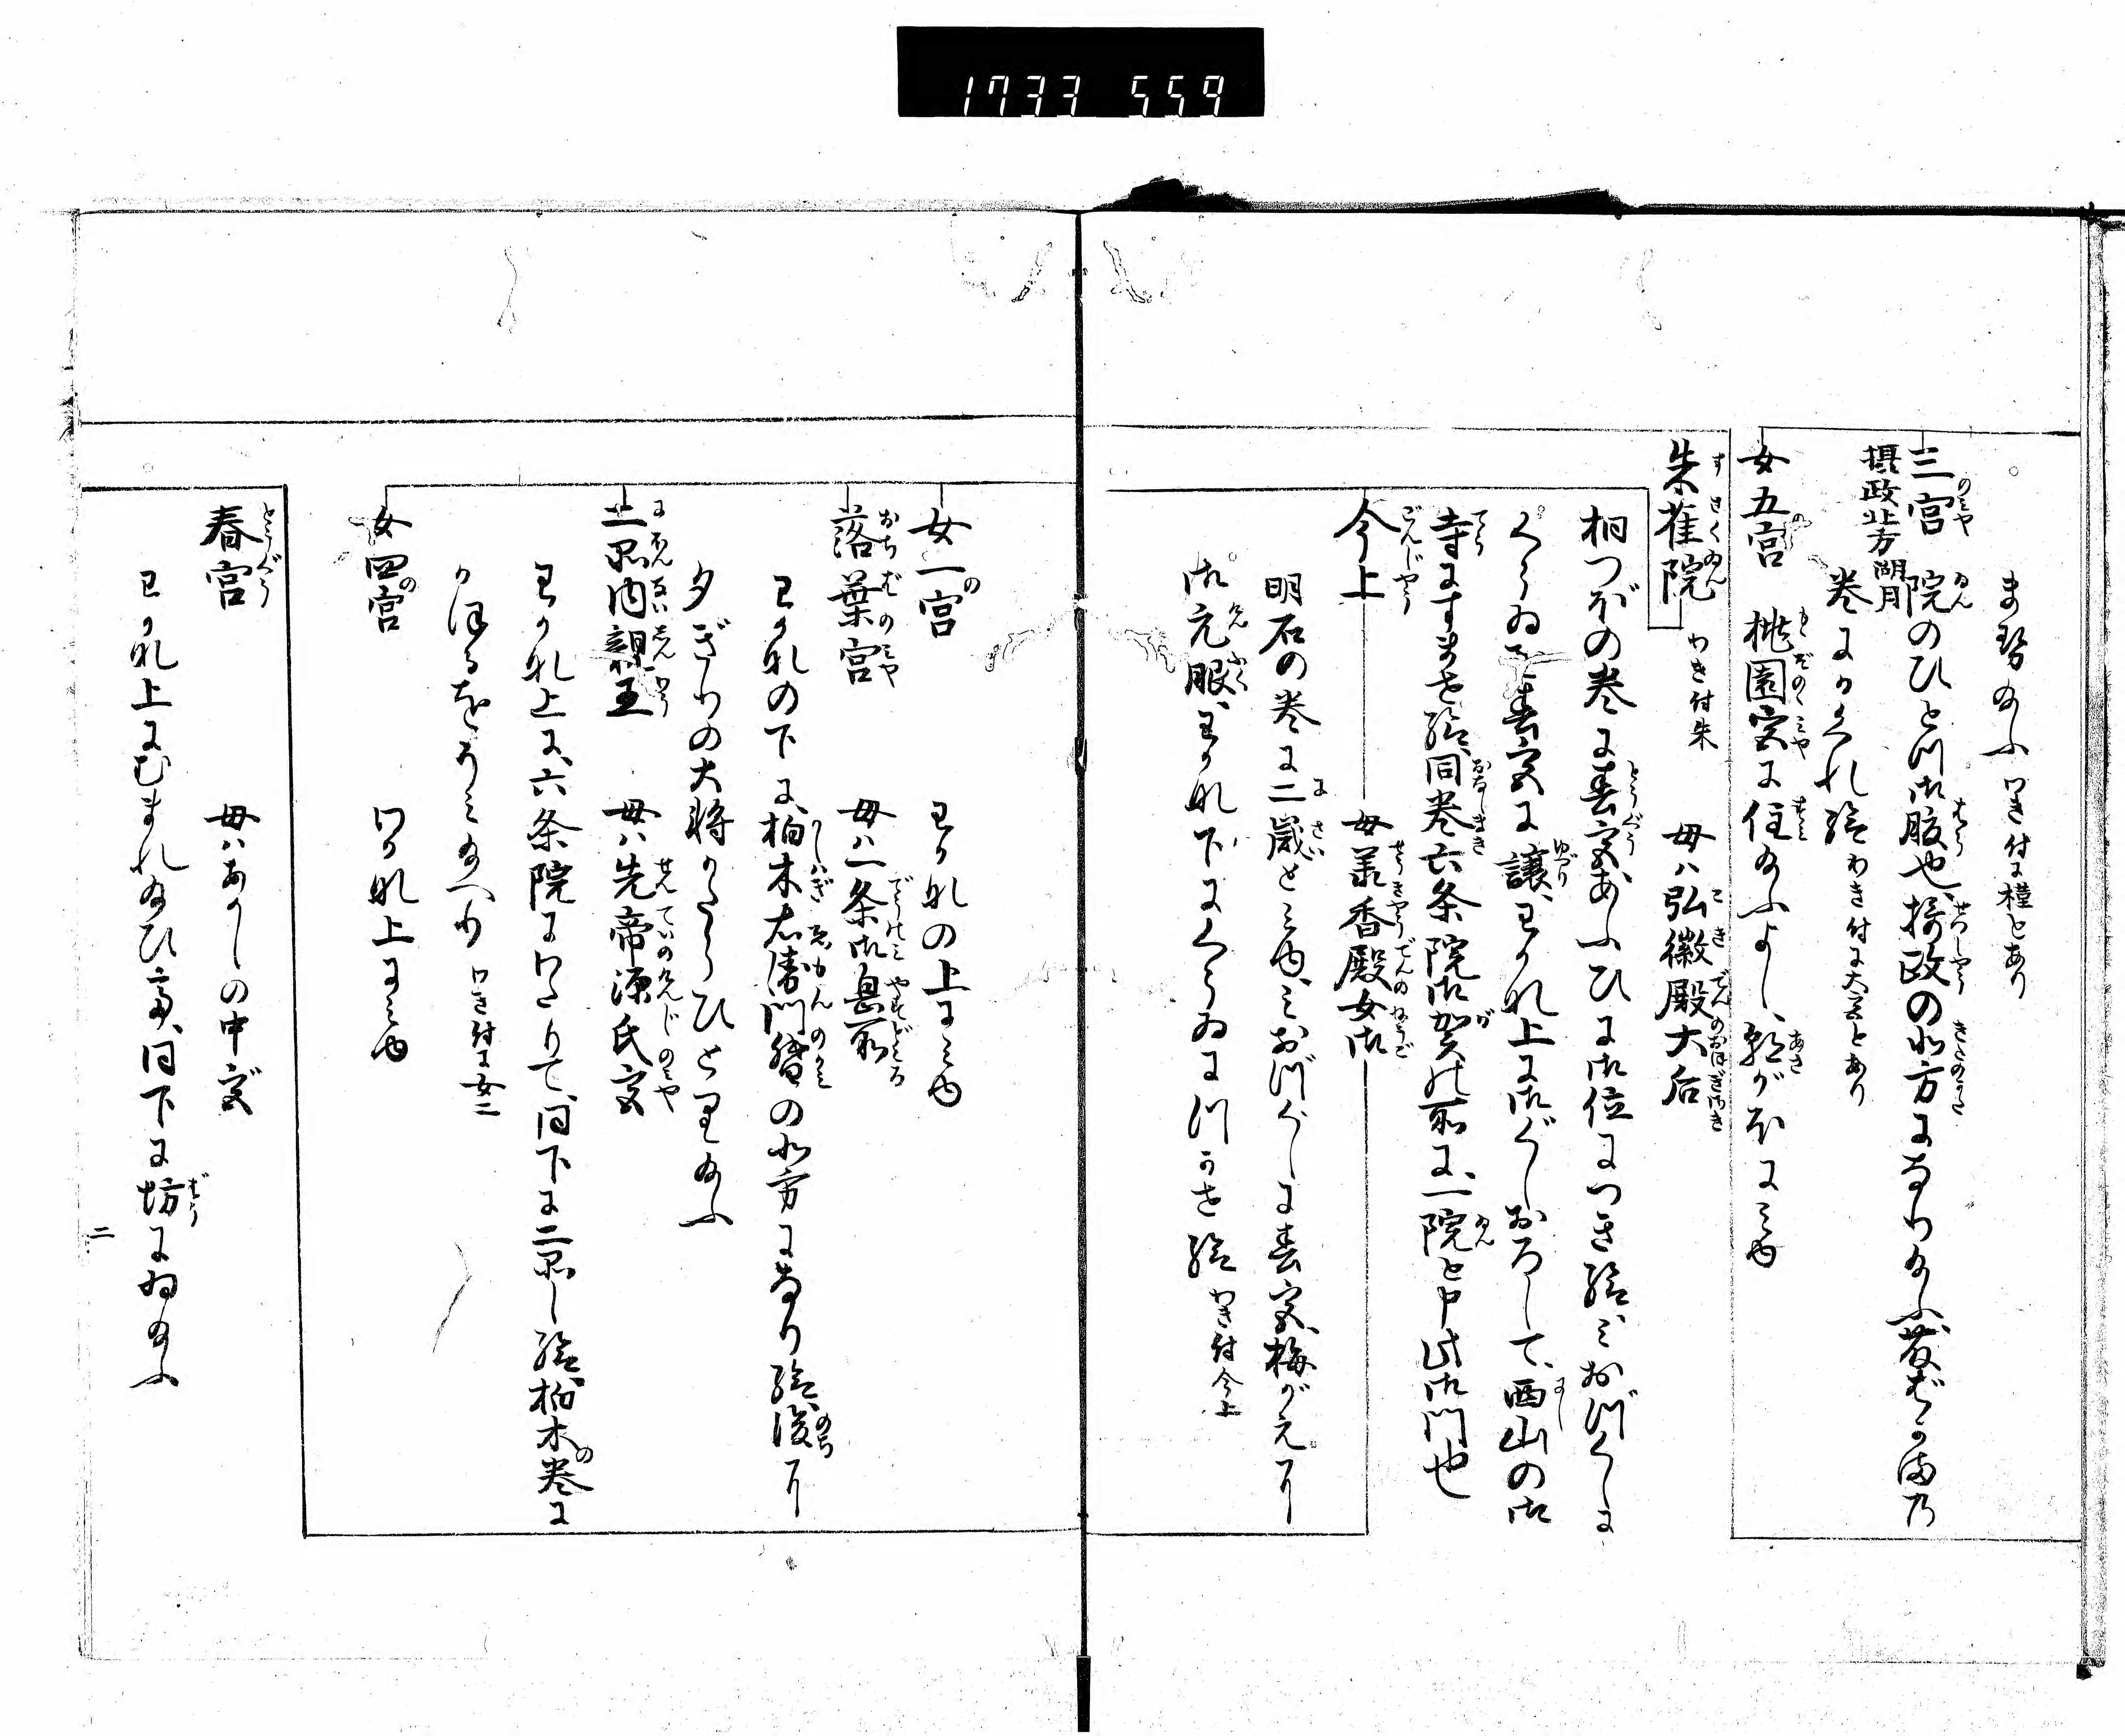 1733 559
ませ給ふ わき付に槿とあり
三宮 院のひとつ御腹也、摂政の北方になり給ふ、藤ばかまの
摂政北方 湖月
巻にかくれ給 わき付に大宮とあり
女五宮 桃園宮に住給ふよし、朝がほにみゆ
朱雀院 わき付朱 母ハ弘徽殿大后
桐つぼの巻に春宮、あふひに御位につき給、みおつくしに
くらゐを春宮に譲、わかな上に御ぐしおろして、西山の御
寺にすませ給、同巻六条院御賀の所に、一院と申此御門也
今上 母承香殿女御
明石の巻に二歳とみゆ、みおつくしに春宮、梅がえに
御元服、わかな下にくらゐにつかせ給 わき付今上
女一宮 わかなの上にみゆ
落葉宮 母ハ一条御息所
わかなの下に、柏木右衛門督の北方になり給、後に
夕ぎりの大将かたらひとり給ふ
二品内親王 母ハ先帝源氏宮
わかな上に、六条院にわたりて、同下に二品し給、柏木の巻に
かほるをうみ給へり わき付に女三
女四宮 わかな上にみゆ
春宮 母ハあかしの中宮
わかな上にむまれ給ひ、同下に坊にゐ給ふ
二